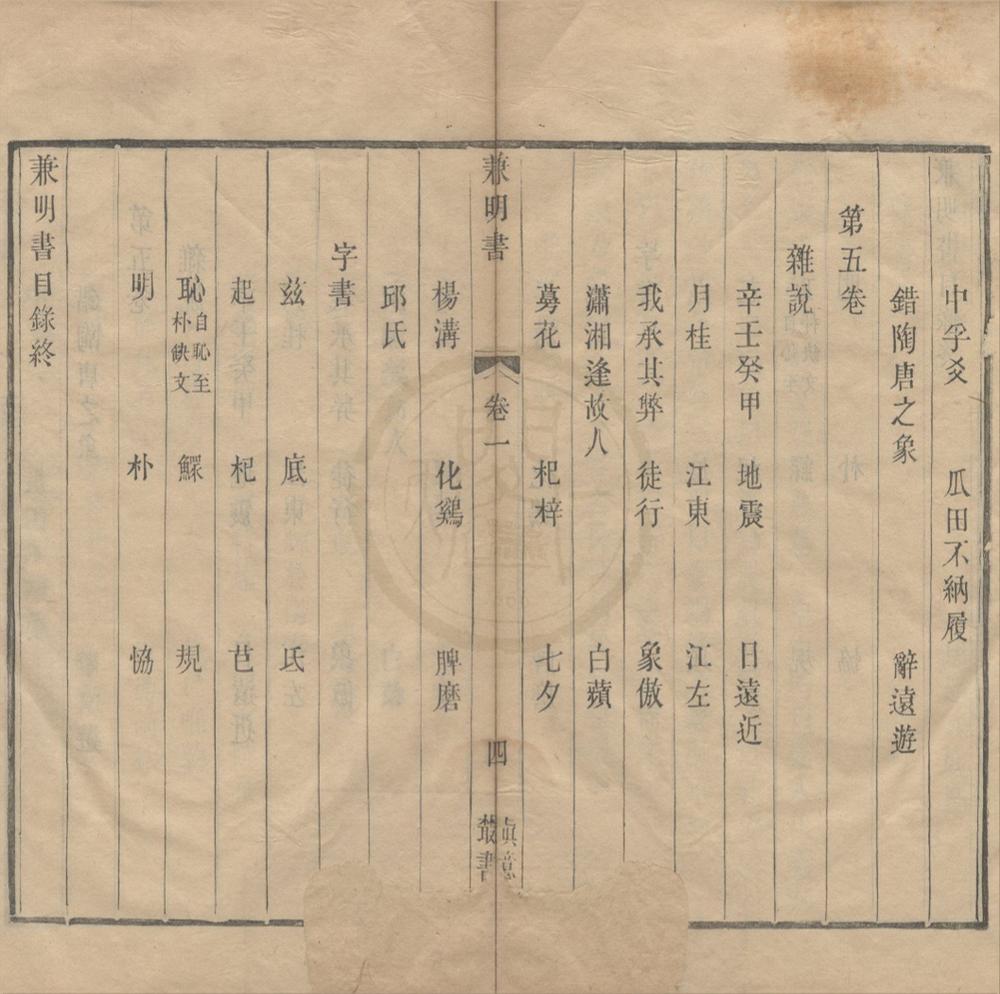 中孚爻　瓜田不納履
錯陶唐之象　辭遠遊
第五卷
雜說
辛壬癸甲　地震　日遠近
月桂　江東　江左
我承其弊　徒行　象傲
瀟湘逢故人　白蘋
蕣花　杞梓　七夕
兼明書　卷一　四　眞意叢書
楊溝　化鷄　脾磨
邱氏
字書
玆　底　氐
起　杞　芑
恥自恥至朴缺文　鰥　規
明　朴　恊
兼明書目錄終